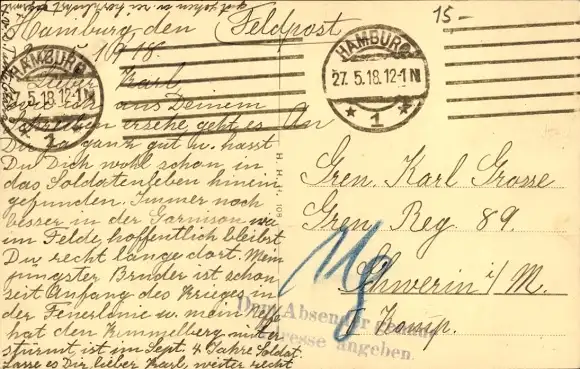 Hamburg, den
Feldpost
15-
HAMBURG
27.5.18.12-1 N
1
HAMBURG
27.5.18.12-1 N
* 1 *
Karl
wie ich aus Deinem
Schreiben ersehe geht es
Dir ja ganz gut u. hast
Du Dich wohl schon in
das Soldatenleben hinein
gefunden. Immer noch
besser in der Garnison wie
im Felde, hoffentlich bleibst
Du recht lange dort. Mein
jüngster Bruder ist schon
seit Anfang des Krieges in
der Feuerlinie u. mein Neffe
hat den Kemmelberg mit er
stürmt, ist im Sept. 4 Jahre Soldat.
Lasse es Dir lieber Karl, weiter recht
An
Gren. Karl Grosse
Gren. Reg. 89.
Schwerin i/M.
Komp.
Dem Absender
Adresse angeben.